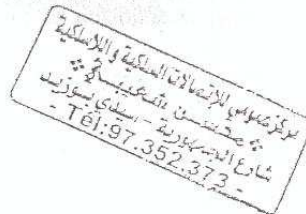 مركز عمومي للإتصالات السلكية واللاسلكية
محسن
شارع الجمهورية - سيدي بوزيد
- Tél:97.352.373 -